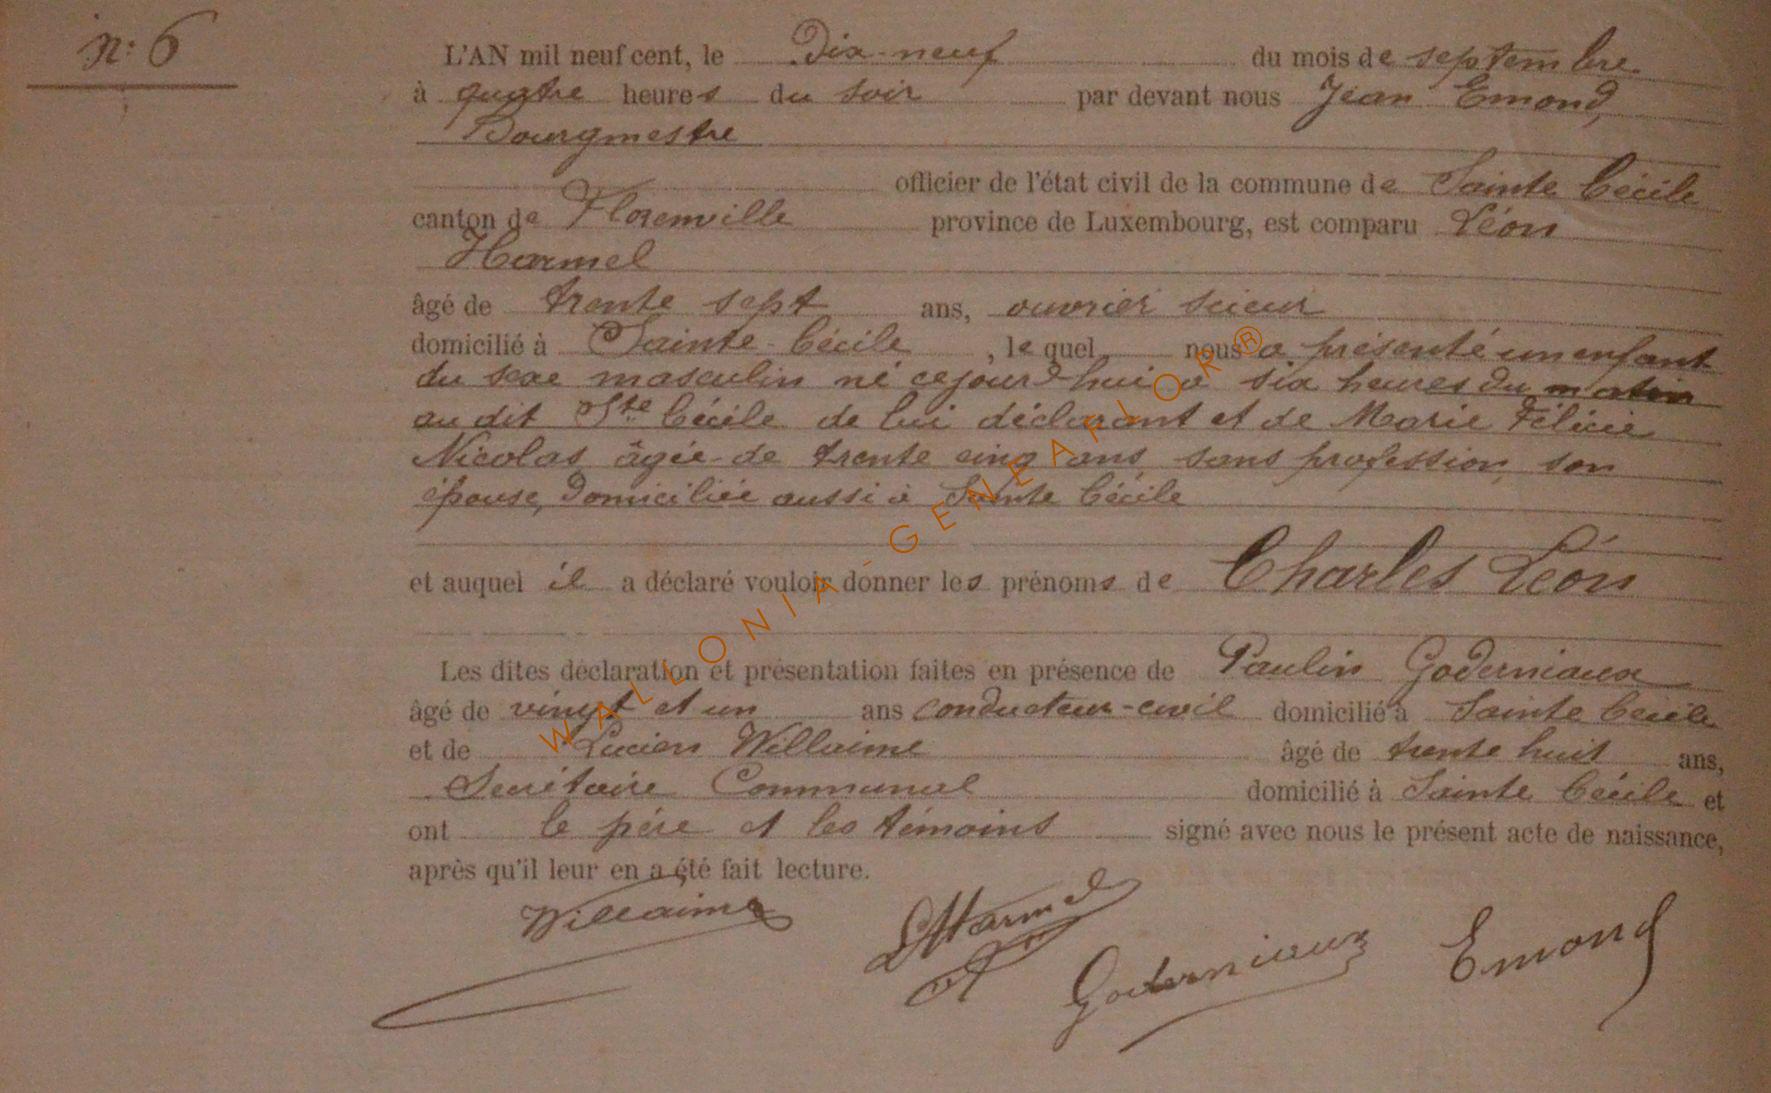 n: 6
L'AN mil neuf cent, le Dix-neuf du mois de septembre
à quatre heures du soir par devant nous Jean Emond,
Bourgmestre
officier de l'état civil de la commune de Sainte Cécile
canton de Florenville province de Luxembourg, est comparu Léon
Harmel
âgé de trente sept ans, ouvrier scieur
domicilié à Sainte-Cécile, le quel nous a présenté un enfant
du sexe masculin né cejourd'hui à six heures du matin
au dit Ste Cécile de lui déclarant et de Marie Félicie
Nicolas âgée de trente cinq ans, sans profession, son
épouse, domiciliée aussi à Sainte Cécile
et auquel il a déclaré vouloir donner les prénoms de Charles Léon
Les dites déclaration et présentation faites en présence de Paulin Goderniaux
âgé de vingt et un ans conducteur-civil domicilié à Sainte Cécile
et de Lucien Willaime âgé de trente huit ans,
Secrétaire Communal domicilié à Sainte Cécile et
ont le père et les témoins signé avec nous le présent acte de naissance,
après qu'il leur en a été fait lecture.
Willaime LHarmel Goderniaux Emond
WALLONIA - GENEAFLOR®